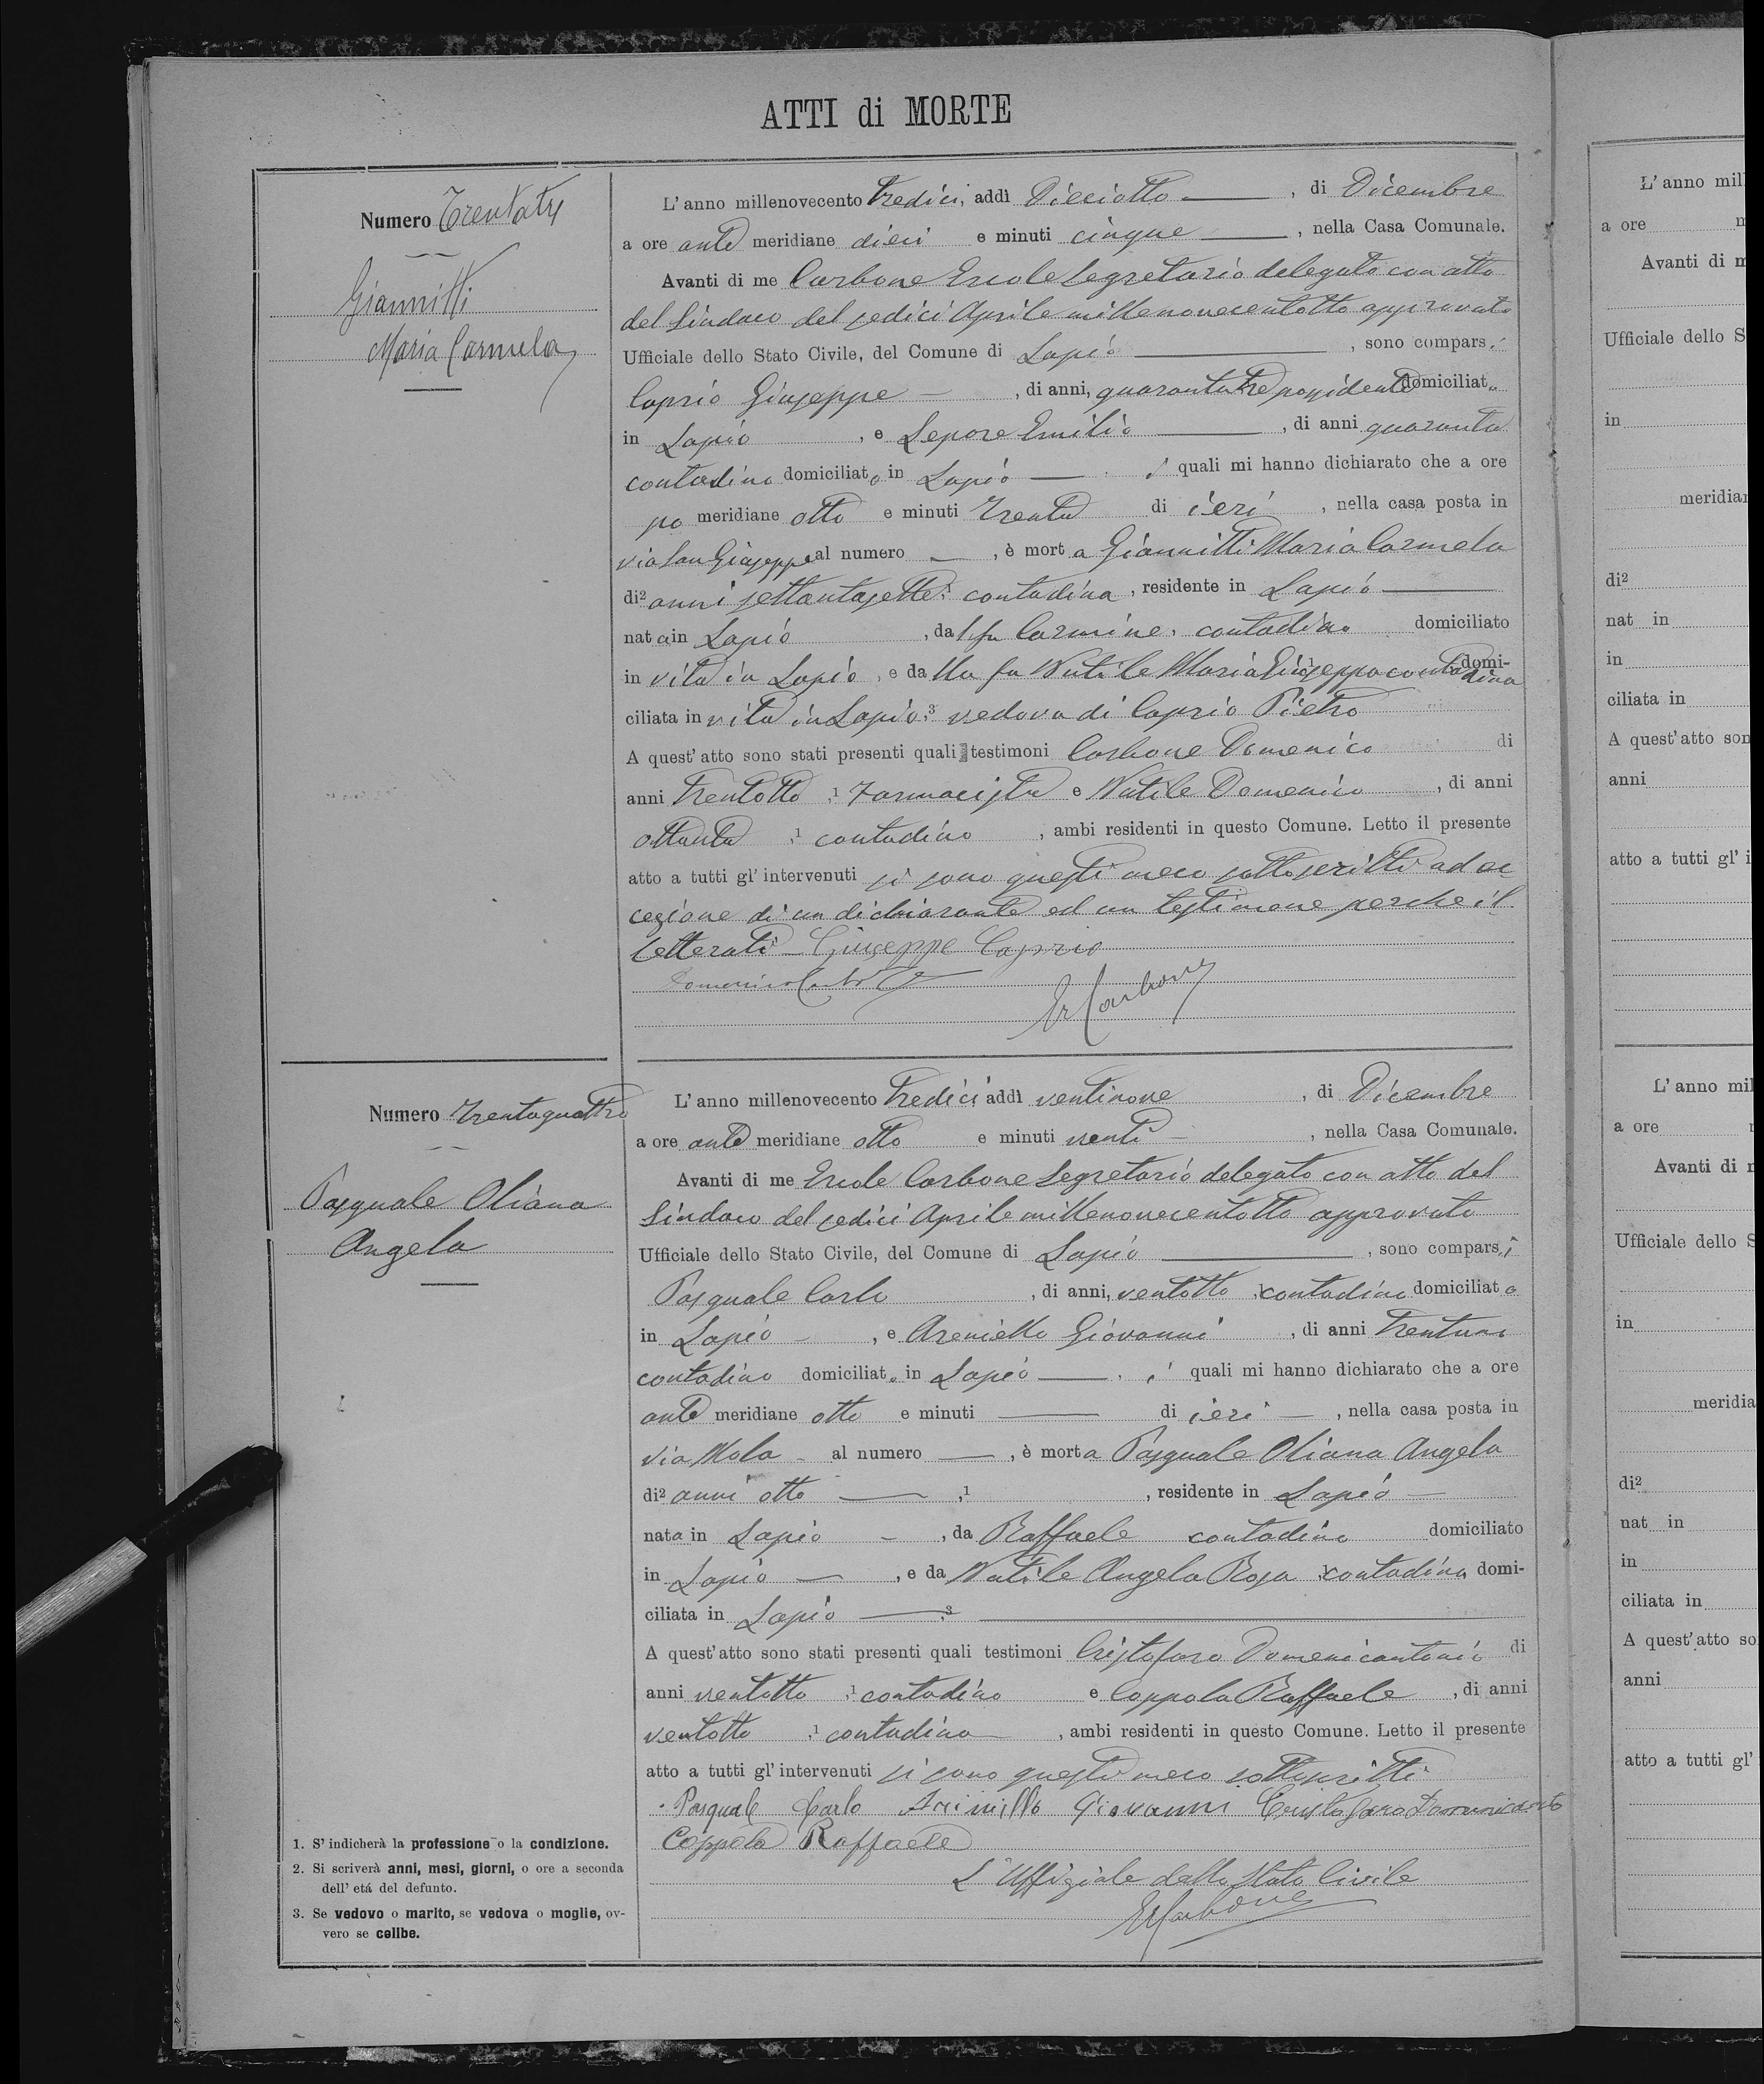 ATTI di MORTE
Numero Trentatre
Giannitti
Maria Carmela
L'anno millenovecento tredici, addì Dieciotto, di Dicembre
a ore ante meridiane dieci e minuti cinque, nella Casa Comunale.
Avanti di me Carbone Ercole Segretario delegato con atto
del Sindaco del sedici Aprile millenovecentotto approvato
Ufficiale dello Stato Civile, del Comune di Lapio, sono comparsi
Caprio Giuseppe, di anni, quarantatre possidente domiciliato
in Lapio, e Lepore Emilio, di anni quaranta
contadino domiciliato in Lapio, i quali mi hanno dichiarato che a ore
po meridiane otto e minuti trenta di ieri, nella casa posta in
via San Giuseppe al numero —, è morta Giannitti Maria Carmela
di² anni settantasette, contadina, residente in Lapio
nata in Lapio, dal fu Carmine, contadino domiciliato
in vita in Lapio, e dalla fu Nutile Maria Giuseppa contadina domi-
ciliata in vita in Lapio, ³ vedova di Caprio Pietro
A quest'atto sono stati presenti quali testimoni Carbone Domenico di
anni trentotto, ¹ Farmacista e Nutile Domenico, di anni
ottanta, ¹ contadino, ambi residenti in questo Comune. Letto il presente
atto a tutti gl'intervenuti si sono questi meco sottoscritti ad ec
cezione di un dichiarante ed un testimone perchè il
letterati — Giuseppe Caprio
Domenico Carbone
Er Carbone
Numero Trentaquattro
Pasquale Oliana
Angela
L'anno millenovecento tredici addì ventinove, di Dicembre
a ore ante meridiane otto e minuti venti, nella Casa Comunale.
Avanti di me Ercole Carbone Segretario delegato con atto del
Sindaco del sedici Aprile millenovecentotto approvato
Ufficiale dello Stato Civile, del Comune di Lapio, sono comparsi
Pasquale Carlo, di anni, ventotto contadino domiciliato
in Lapio, e Areniello Giovanni, di anni trentuno
contadino domiciliato in Lapio, i quali mi hanno dichiarato che a ore
ante meridiane otto e minuti — di ieri, nella casa posta in
via Mola al numero —, è morta Pasquale Oliana Angela
di² anni otto, ¹, residente in Lapio
nata in Lapio, da Raffaele contadino domiciliato
in Lapio, e da Nutile Angela Rosa contadina domi-
ciliata in Lapio, ³
A quest'atto sono stati presenti quali testimoni Cristofaro Domenicantonio di
anni ventotto, ¹ contadino e Coppola Raffaele, di anni
ventotto, ¹ contadino, ambi residenti in questo Comune. Letto il presente
atto a tutti gl'intervenuti si sono questi meco sottoscritti
Pasquale Carlo Giovanni
Coppola Raffaele
L'Uffiziale dello Stato Civile
Er Carbone
1. S'indicherà la professione o la condizione.
2. Si scriverà anni, mesi, giorni, o ore a seconda
dell'etá del defunto.
3. Se vedovo o marito, se vedova o moglie, ov-
vero se celibe.
L'anno mil
a ore
Avanti di m
Ufficiale dello S
in
meridian
di²
nat in
in
ciliata in
A quest'atto son
anni
atto a tutti gl'i
L'anno mil
a ore
Avanti di
Ufficiale dello S
in
meridia
di²
nat in
in
ciliata in
A quest'atto so
anni
atto a tutti gl'